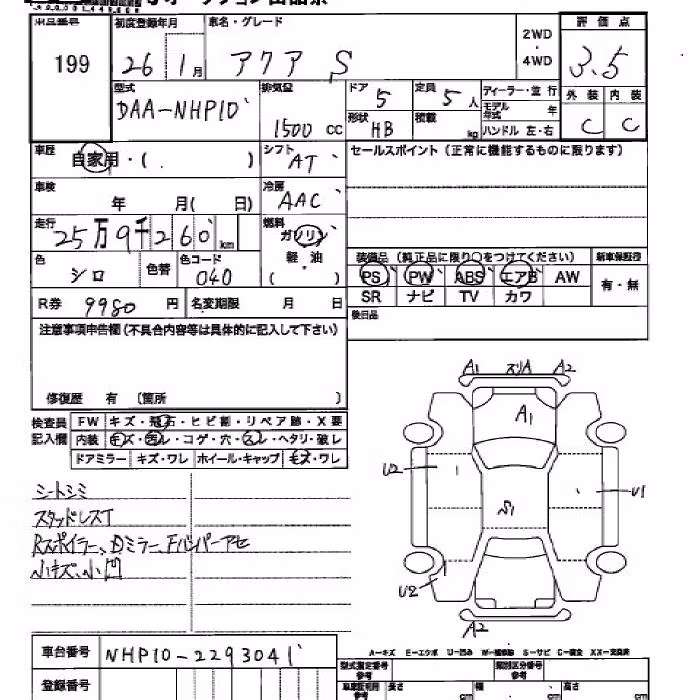 199
初度登録年月
車名・グレード
2WD
・
4WD
評価点
26 1月
アクア S
3.5
型式
排気量
ドア
定員
ディーラー・並行
外装 内装
DAA-NHP10
1500 CC
5
5人
モデル年式 年
形状
積載
HB
kg
ハンドル 左・右
C C
車歴
自家用・( )
シフト
AT
セールスポイント(正常に機能するものに限ります)
車検
年 月( 日)
冷房
AAC
走行
25万9千260km
燃料
ガソリン
軽・油
( )
装備品(純正品に限り○をつけてください)
新車保証書
色
シロ
色替
色コード
040
PS PW ABS エアB AW
有・無
SR ナビ TV カワ
R券 9980 円
名変期限 月 日
後日品
注意事項申告欄(不具合内容等は具体的に記入して下さい)
修復歴 有 〔箇所 〕
検査員記入欄
FW キズ・飛石・ヒビ割・リペア跡・X要
内装 キズ・汚レ・コゲ・穴・スレ・ヘタリ・破レ
ドアミラー キズ・ワレ ホイール・キャップ キズ・ワレ
A1 スリA A2
A1
U2
S1
U1
U2
A2
シートシミ
スタッドレスT
Rスポイラー、Dミラー、Fバンパーアセ
小キズ、小凹
A-キズ E-エクボ U-凹み W-補修跡 S-サビ C-腐食 XX-交換済
車台番号
NHP10-2293041
登録番号
型式指定番号
参考
類別区分番号
参考
車庫証明用
参考
長さ cm
幅 cm
高さ cm